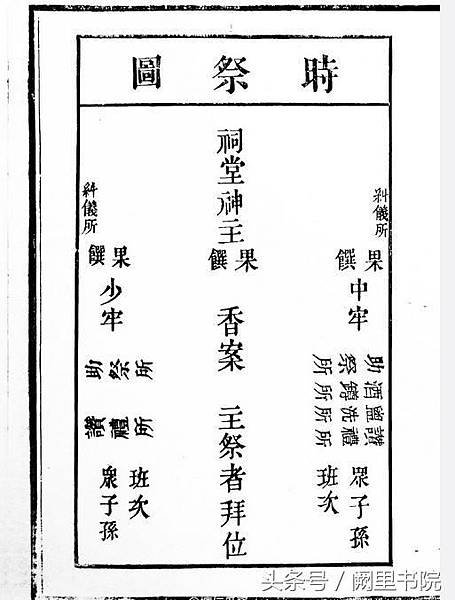 時祭圖
糾儀所
果饌
中牢
助祭所
酒罇所
盥洗所
讚禮所
眾子孫
班次
祠堂神主
果饌
香案
主祭者拜位
糾儀所
果饌
少牢
助祭所
讚禮所
班次
衆子孫
头条号 / 阙里书院